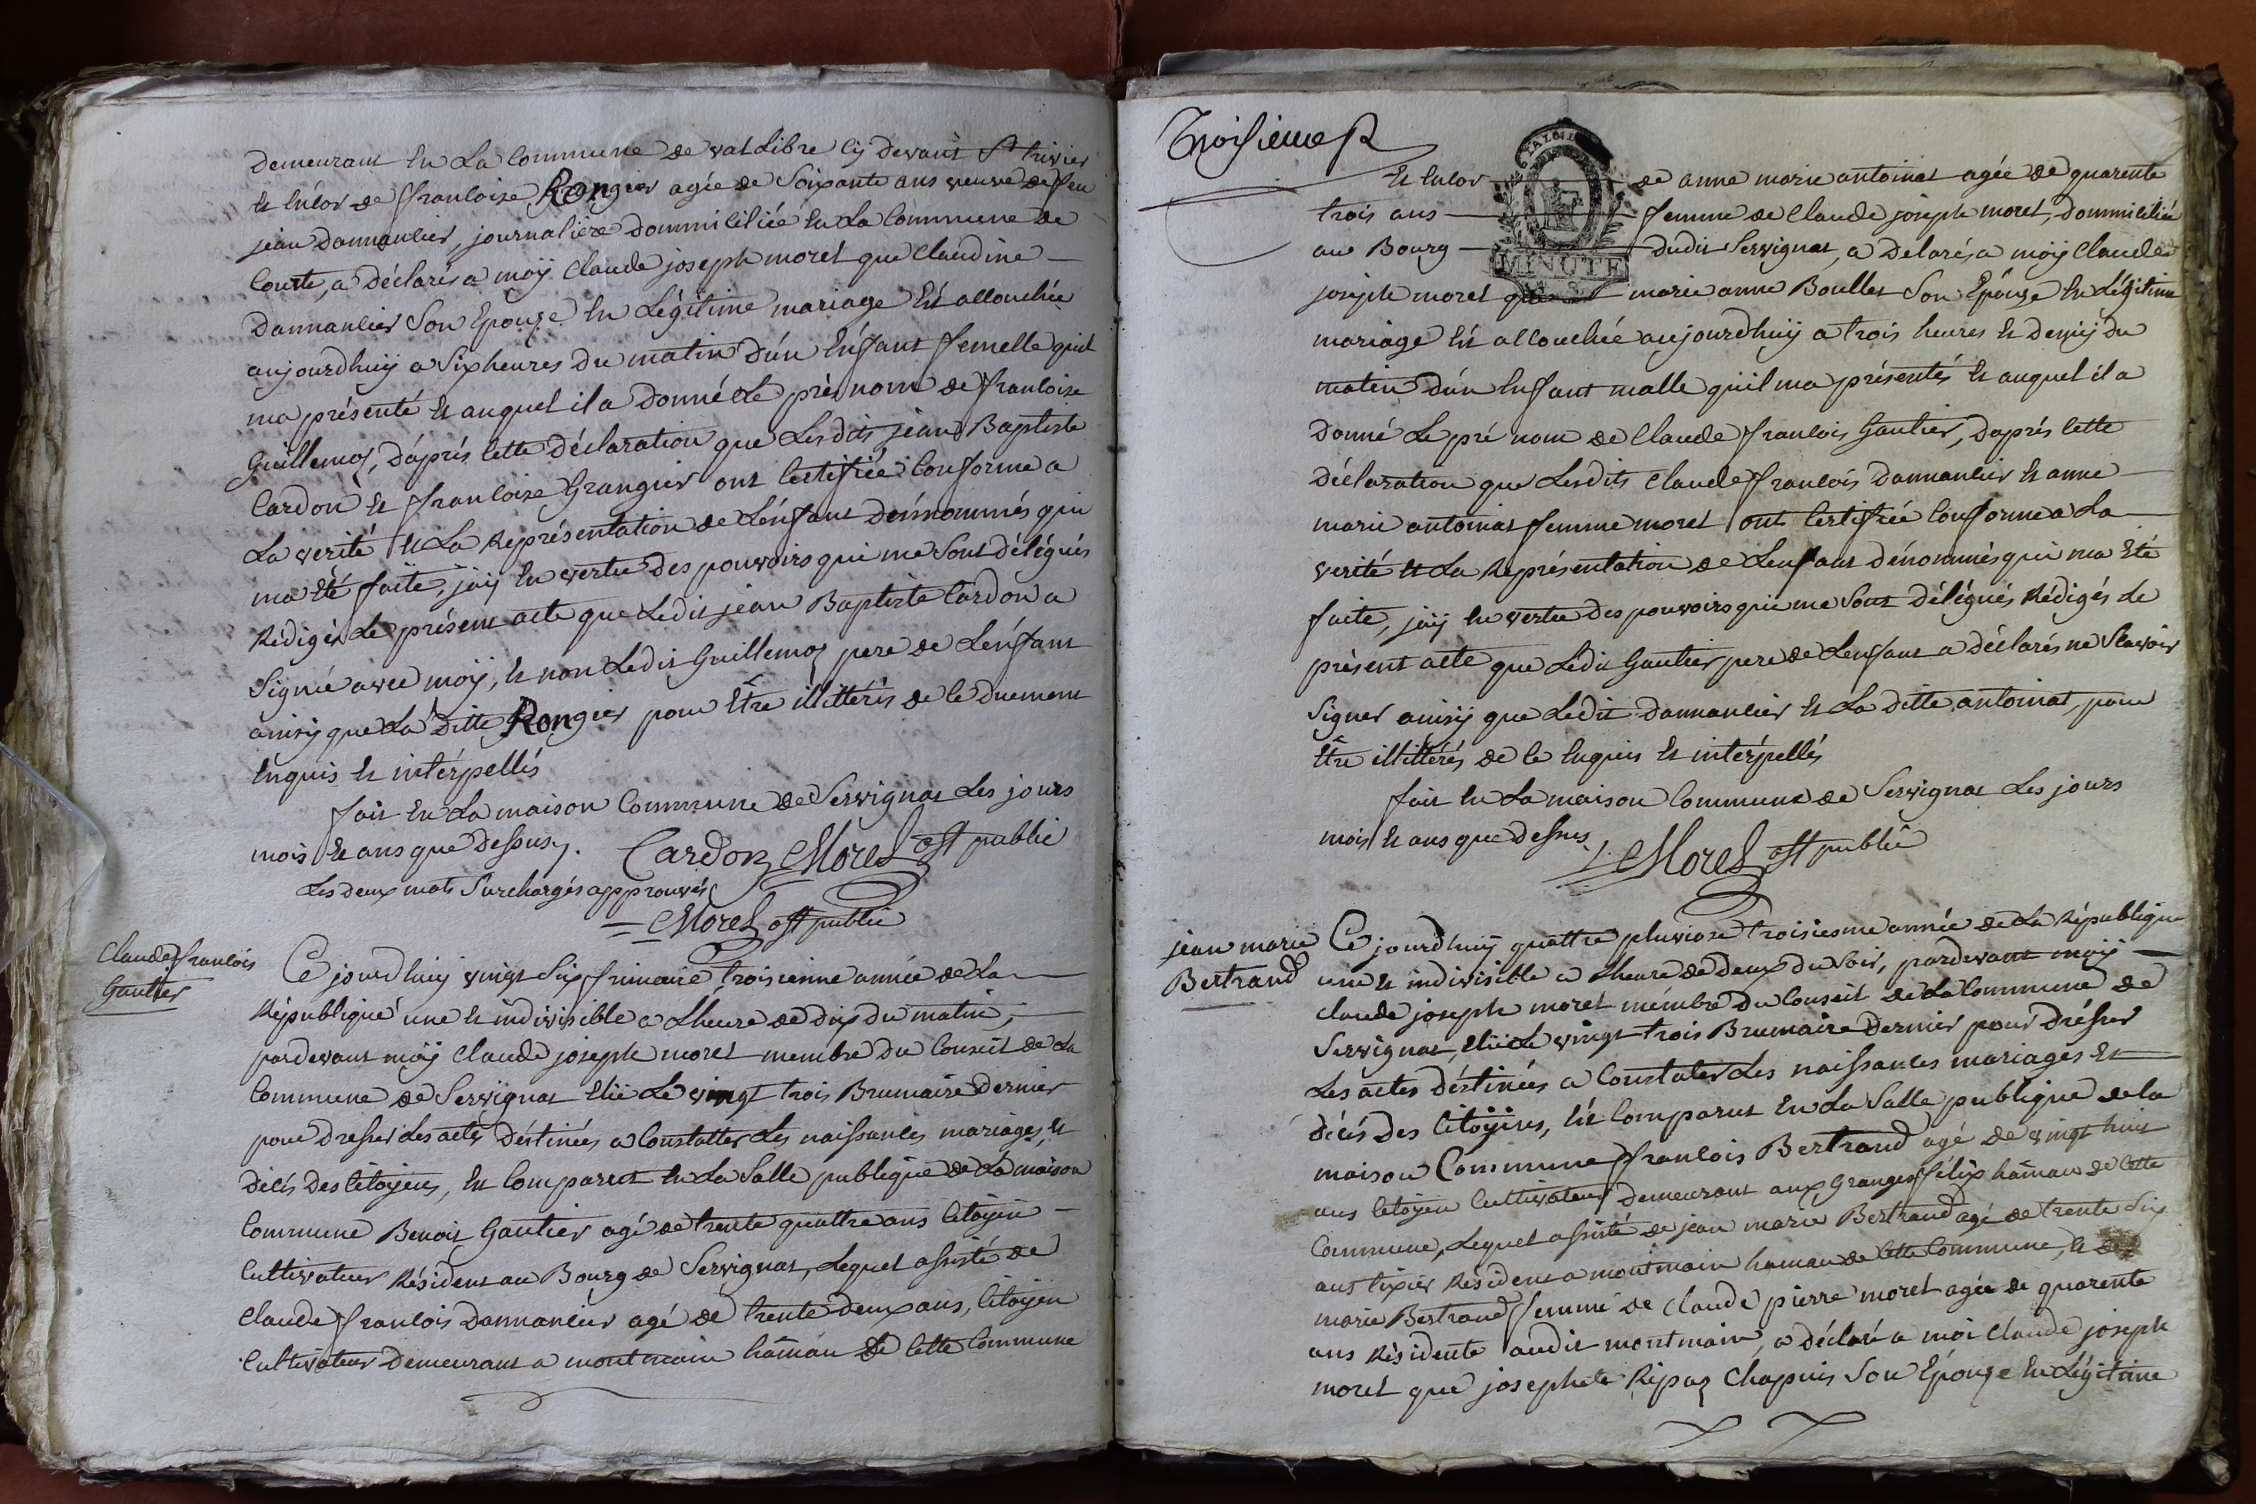 Demeurant En La Commune de val Libre cy devant St trivier
Et Encor de francoise Rongier agée de Soixante ans veuve de feu
jean Dannancier, journaliere dommiciliée En La Commune de
Courte, a Déclarés a moÿ Claude joseph morel que Claudine
Dannancier Son Epouze En Légitime mariage Est accouchée
aujourdhuÿ a Six heures du matin d'ún Enfant femelle quil
ma présenté Et auquel il a Donné Le pré nom de francoise
Guillemoz, D'aprés Cette Déclaration que Lesdits jean Baptiste
Cardon Et francoise Grangier ont Certifiée Conforme a
La verité Et La Représentation de Lénfant dénnommés qui
ma Eté faite, j'aÿ En vertu des pouvoirs qui me Sont délégués
Rédigés Le présent acte que Ledit jean Baptiste Cardon a
Signé avec moÿ, Et non Ledit Guillemoz pere de Lénfant
ainsÿ que La ditte Rongier pour Etre illittérés de ce Duement
Enquis Et intérpellés
fait En La maison Commune de Servignat Les jours
mois Et ans que Dessus. Cardon Morel off public
Les deux mots Surchargés approuvés
Morel off public
Claude francois
Gautier
Ce jourdhuÿ vingt Six frimaire, troisienne année de La
République une Et indivisible a Lheure de dix du matin,
pardevant moÿ Claude joseph morel membre du Conseit de La
Commune de Servignat Elüe Le vingt trois Brumaire dernier
pour Dresser Les actes déstinées a Constatter Les naissances mariages Et
décés Des Citoÿens, Est Comparut En La Salle publique de La maison
Commune Benoit Gautier agé de trente quattre ans Citoÿen
Cultivateur Résident au Bourg de Servignat, Lequel assisté de
Claude francois Dannancier agé de trente deux ans, Citoÿen
Cultivateur Demeurant a montmain hâmau de Cette Commune
Troisieme R
LA LOI
MINUTE
Et Encor de anne marie antoinat agée de quarente
trois ans femme de Claude joseph morel, dommiciliée
au Bourg dudit Servignat, a Déclarés a moÿ Claude
joseph morel que marie anne Boullet Son Epouze En Légitime
mariage Est accouchée aujourdhuÿ a trois heures Et demÿ du
matin d'ún Enfant malle qu'il ma présentés Et auquel il a
Donné Le pré nom de Claude francois Gautier, D'aprés Cette
Déclaration que Lesdits Claude francois Dannancier Et anne
marie antoinat femme morel ont Certifiée Conforme a La
verité Et La Représentation de Lenfant dénommés qui ma Eté
faite, j'aÿ En vertu des pouvoirs qui me Sont délégués Rédigés Le
présent acte que Ledit Gautier pere de Lenfant a déclarés ne Scavoir
Signer ainsÿ que Ledit Dannancier Et La ditte antoinat, pour
Etre illittérés de ce Enquis Et intérpellés
fait En La maison Commune de Servignat Les jours
mois Et ans que dessus Morel off public
jean marie
Bertrand
Ce jourdhuÿ quattre pluviose troisiesme année de La République
une Et indivisible a Lheure de deux du Soir, pardevant moÿ
Claude joseph morel mémbre du Conseit de La Commune de
Servignat, Elüe Le vingt trois Brumaire dernier pour drésser
Les actes déstinées a Constater Les naissances mariages Et
décés Des Citoÿens, Est Comparut En La Salle publique de la
maison Commune francois Bertrand agé de vingt huit
ans Citoÿen Cultivateur demeurant aux Granges félix hâmau de Cette
Commune, Lequel assisté de jean marie Bertrand agé de trente Six
ans tixier Résident a montmain hamau de Cette Commune, Et de
marie Bertrand femme de Claude pierre morel agée de quarente
ans Résidente audit montmain, a déclaré a moi Claude joseph
morel que josephete Répaz Chapuis Son Epouze En Légitime